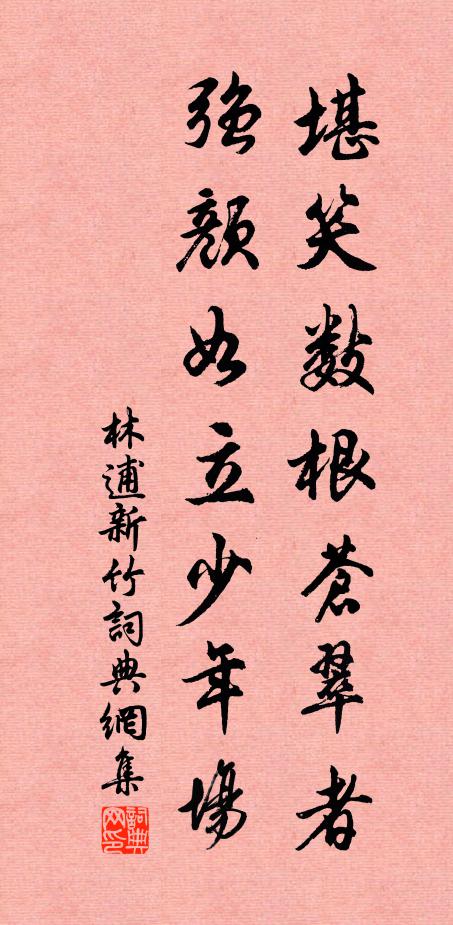 堪笑数根蒼翠者
强顔如立少年場
林逋新竹詞典網集
詞典网印